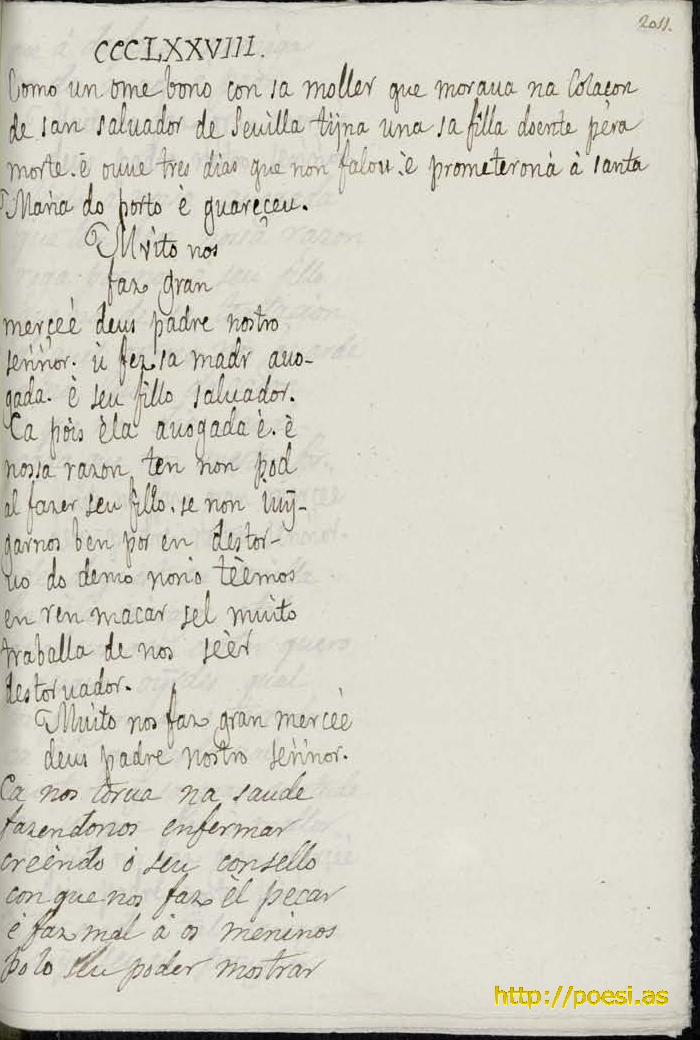 2011.
CCCLXXVIII.
Como un ome bono con sa moller que moraua na Colaçon
de san saluador de Seuilla tijna una sa filla doente pèra
morte. è ouue tres dias que non falou. è prometeronà à santa
Maria do porto è guareçeu.
Muito nos
faz gran
merçeè deus padre nostro
sennor. ù fez sa madr auo-
gada. è seu fillo saluador.
Ca pois èla auogada è. è
nossa razon ten non pod
al fazer seu fillo. se non iuÿ-
garnos ben por en destor-
uo do demo nono tèemos
en ren macar sel muito
traballa de nos seèr
destoruador.
Muito nos faz gran merceè
deus padre nostro sennor.
Ca nos torua na saude
fazendonos enfermar
creèndo ò seu consello
con que nos faz èl pecar
è faz mal à os meninos
polo seu poder mostrar
http://poesi.as